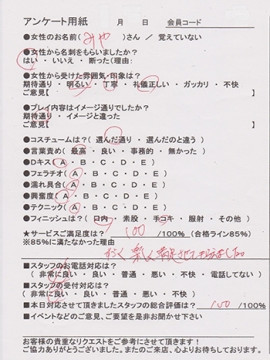 アンケート用紙　　月　　日　会員コード
●女性のお名前(みや)さん / 覚えていない
●女性から名刺をもらいましたか?
はい・いいえ・断った(理由:
●女性から受けた雰囲気・印象は?
期待通り・明るい・丁寧・礼儀正しい・ガッカリ・不快
ご意見[
●プレイ内容はイメージ通りでしたか?
期待通り・イメージと違った
ご意見[
●コスチュームは?( 選んだ通り ・ 選んだのと違う )
●言葉責め( 最高 ・ 良い ・ 事務的 ・ 無かった )
●Dキス( A・B・C・D・E )
●フェラチオ( A・B・C・D・E )
●濡れ具合( A・B・C・D・E )
●興奮度( A・B・C・D・E )
●テクニック( A・B・C・D・E )
●フィニッシュは?( 口内 ・ 素股 ・ 手コキ ・ 服射 ・ その他 )
★サービスご満足度は? 100 /100% (合格ライン85%)
※85%に満たなかった理由
■スタッフのお電話対応は?
( 非常に良い ・ 良い ・ 普通 ・ 悪い ・ 不快 ・ 電話してない )
■スタッフの受付対応は?
( 非常に良い ・ 良い ・ 普通 ・ 悪い ・ 不快 )
■本日対応させて頂きましたスタッフの総合評価は? 100 /100%
■イベントなどのご意見、ご要望を是非お聞かせ下さい
お客様の貴重なリクエストをご参考にさせて頂きます!
ご協力ありがとうございました。またのご来店、心よりお待ちしております。